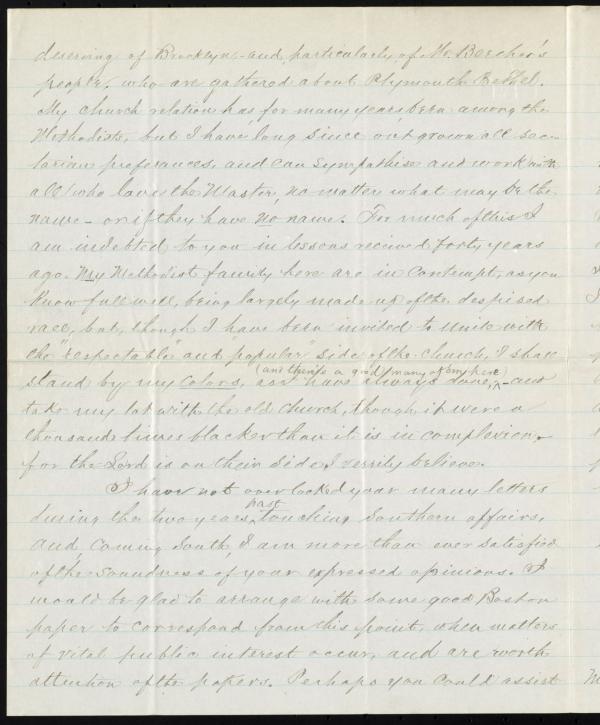 deserving of Brooklyn - and particularly of Mr. Beecher's
people, who are gathered about Plymouth Bethel.
My church relation has, for many years, been among the
Methodists, but I have long since outgrown all sec-
tarian preferances, and can sympathise and work with
all who love the Master, no matter what may be the
name - or if they have no name. For much of this I
am indebted to you in lessons received forty years
ago. My Methodist family here are in contempt, as you
know full well, being largely made up of the despised
race, but, though I have been invited to unite with
the "respectable" and "popular" side of the church, I shall
(and there is a good many of em, here)
stand by my colors, as I have always done, - and
take my lot with the old church, though it were a
thousand times blacker than it is in complexion,
for the Lord is on their side I verrily believe.
I have not over looked your many letters
past
during the two years, touching Southern affairs,
and coming South, I am more than ever satisfied
of the soundness of your expressed opinions. I
would be glad to arrange with some good Boston
paper to correspond from this point, when matters
of vital public interest occur, and are worth
attention of the papers. Perhaps you could assist